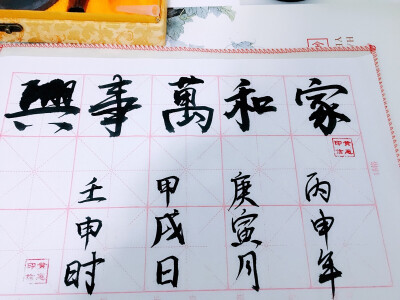 家和萬事興
丙申年
庚寅月
甲戌日
壬申时